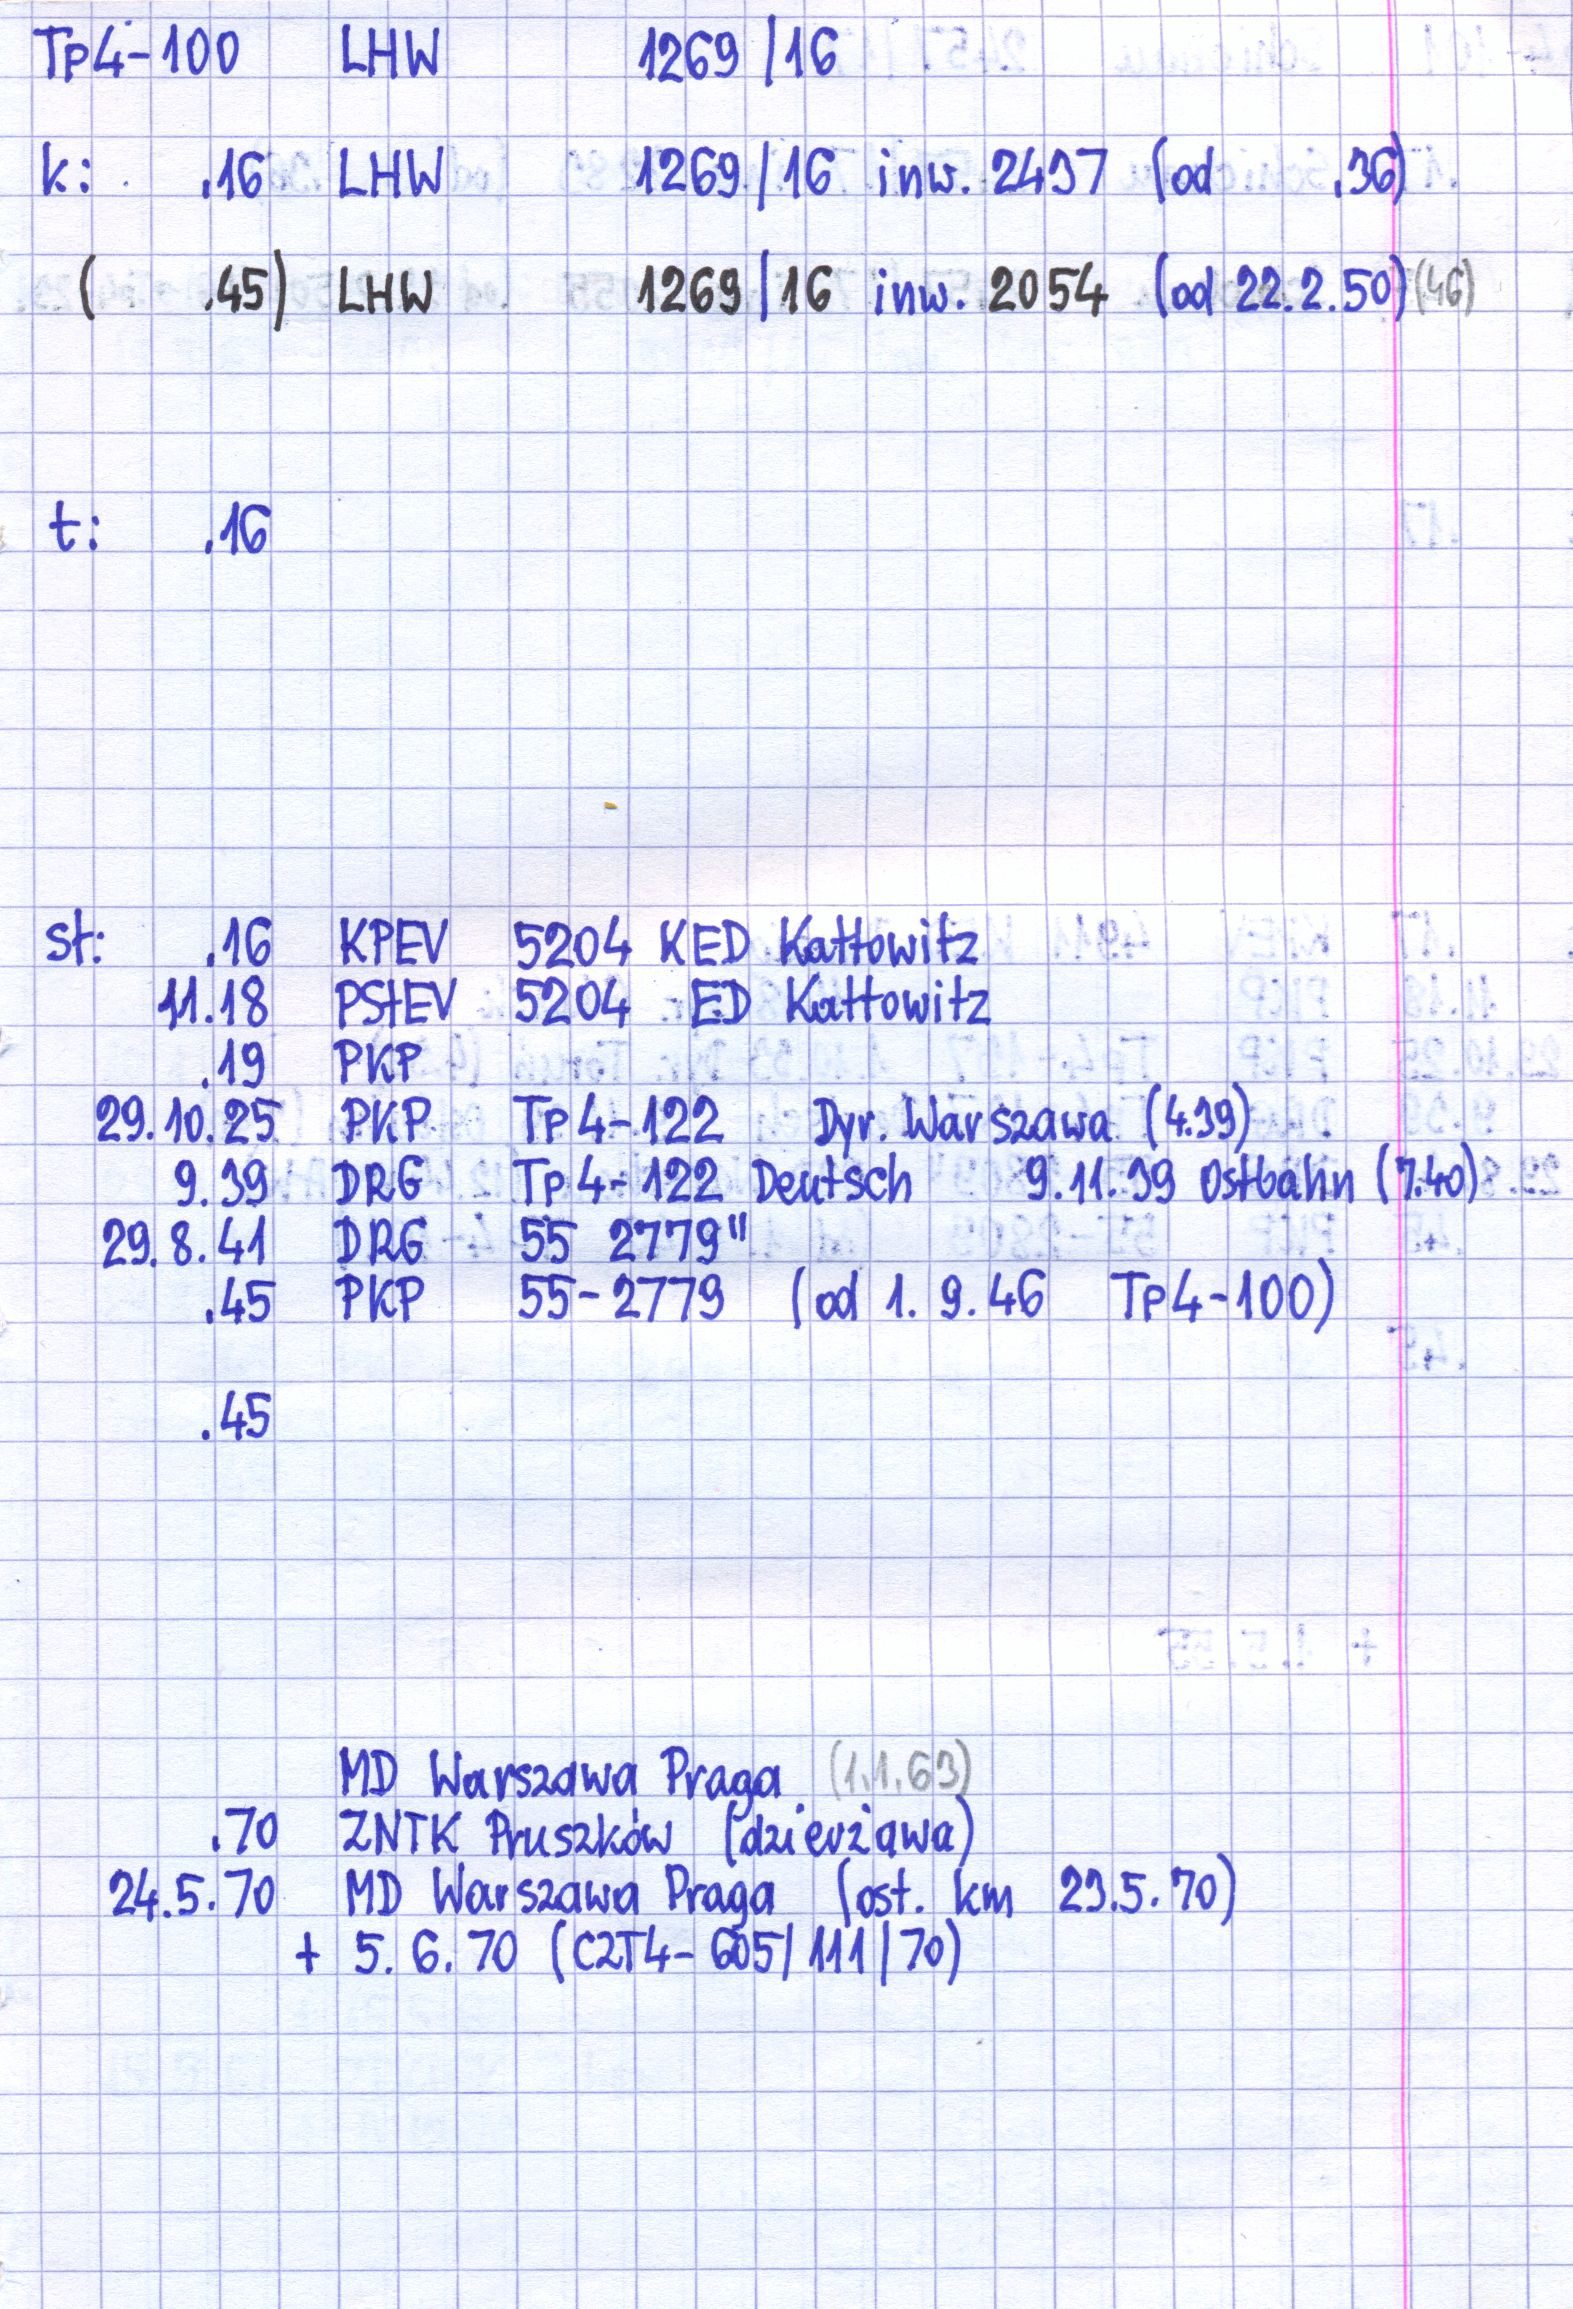 Tp4-100 LHW 1269/16
k: .16 LHW 1269/16 inw. 2497 (od .36)
( .45) LHW 1269/16 inw. 2054 (od 22.2.50) (46)
t: .16
st: .16 KPEV 5204 KED Kattowitz
11.18 PStEV 5204 ED Kattowitz
.19 PKP
29.10.25 PKP Tp4-122 Dyr. Warszawa (4.39)
9.39 DRG Tp4-122 Deutsch 9.11.39 Ostbahn (7.40)
29.8.41 DRG 55 2779"
.45 PKP 55-2779 (od 1.9.46 Tp4-100)
.45
MD Warszawa Praga (1.1.63)
.70 ZNTK Pruszków (dzierżawa)
24.5.70 MD Warszawa Praga (ost. km 23.5.70)
+ 5.6.70 (C2T4-605/111/70)